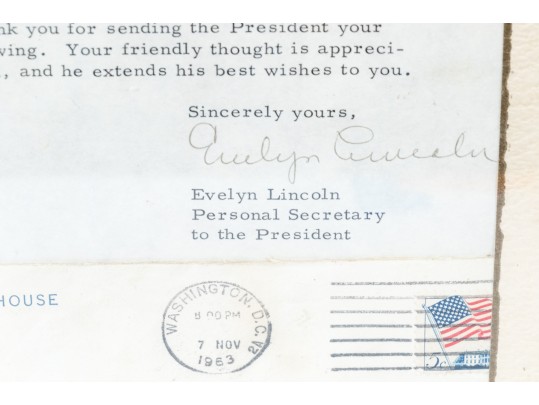 nk you for sending the President your
wing. Your friendly thought is appreci-
., and he extends his best wishes to you.
Sincerely yours,
Evelyn Lincoln
Evelyn Lincoln
Personal Secretary
to the President
HOUSE
WASHINGTON, D.C.
8 00 PM
7 NOV
1963
2A
5¢